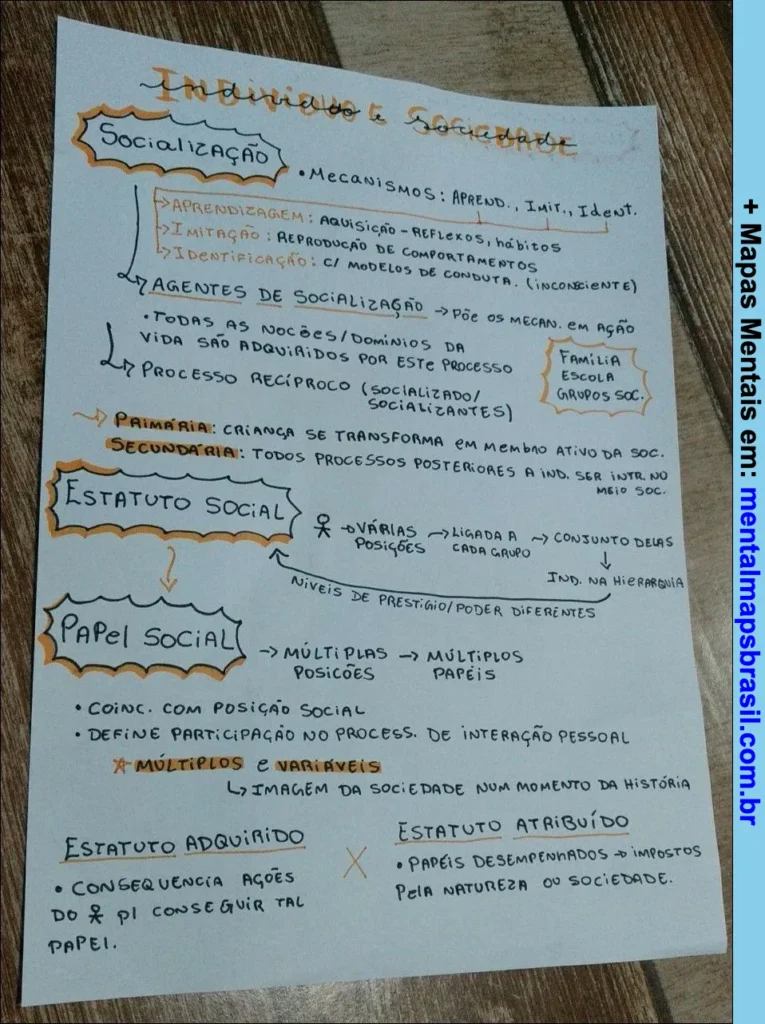 INDIVIDUO E SOCIEDADE
individuo e sociedade
SOCIALIZAÇÃO
• MECANISMOS: APREND., IMIT., IDENT.
→ APRENDIZAGEM: AQUISIÇÃO - REFLEXOS, HÁBITOS
→ IMITAÇÃO: REPRODUÇÃO DE COMPORTAMENTOS
→ IDENTIFICAÇÃO: C/ MODELOS DE CONDUTA. (INCONSCIENTE)
→ AGENTES DE SOCIALIZAÇÃO → PÕE OS MECAN. EM AÇÃO
• TODAS AS NOCÕES/DOMÍNIOS DA
VIDA SÃO ADQUIRIDOS POR ESTE PROCESSO
FAMÍLIA
ESCOLA
GRUPOS SOC.
→ PROCESSO RECÍPROCO (SOCIALIZADO/
SOCIALIZANTES)
→ PRIMÁRIA: CRIANÇA SE TRANSFORMA EM MEMBRO ATIVO DA SOC.
SECUNDÁRIA: TODOS PROCESSOS POSTERIORES A IND. SER INTR. NO
MEIO SOC.
ESTATUTO SOCIAL
→ VÁRIAS → LIGADA A → CONJUNTO DELAS
POSIÇÕES CADA GRUPO
↓
IND. NA HIERARQUIA
NÍVEIS DE PRESTÍGIO/PODER DIFERENTES
PAPEL SOCIAL
→ MÚLTIPLAS → MÚLTIPLOS
POSICÕES PAPÉIS
• COINC. COM POSIÇÃO SOCIAL
• DEFINE PARTICIPAÇÃO NO PROCESS. DE INTERAÇÃO PESSOAL
☆ MÚLTIPLOS E VARIÁVEIS
↳ IMAGEM DA SOCIEDADE NUM MOMENTO DA HISTÓRIA
ESTATUTO ADQUIRIDO X ESTATUTO ATRIBUÍDO
• CONSEQUENCIA AÇÕES
DO P/ CONSEGUIR TAL
PAPEL.
• PAPÉIS DESEMPENHADOS → IMPOSTOS
PELA NATUREZA OU SOCIEDADE.
+ Mapas Mentais em: mentalmapsbrasil.com.br